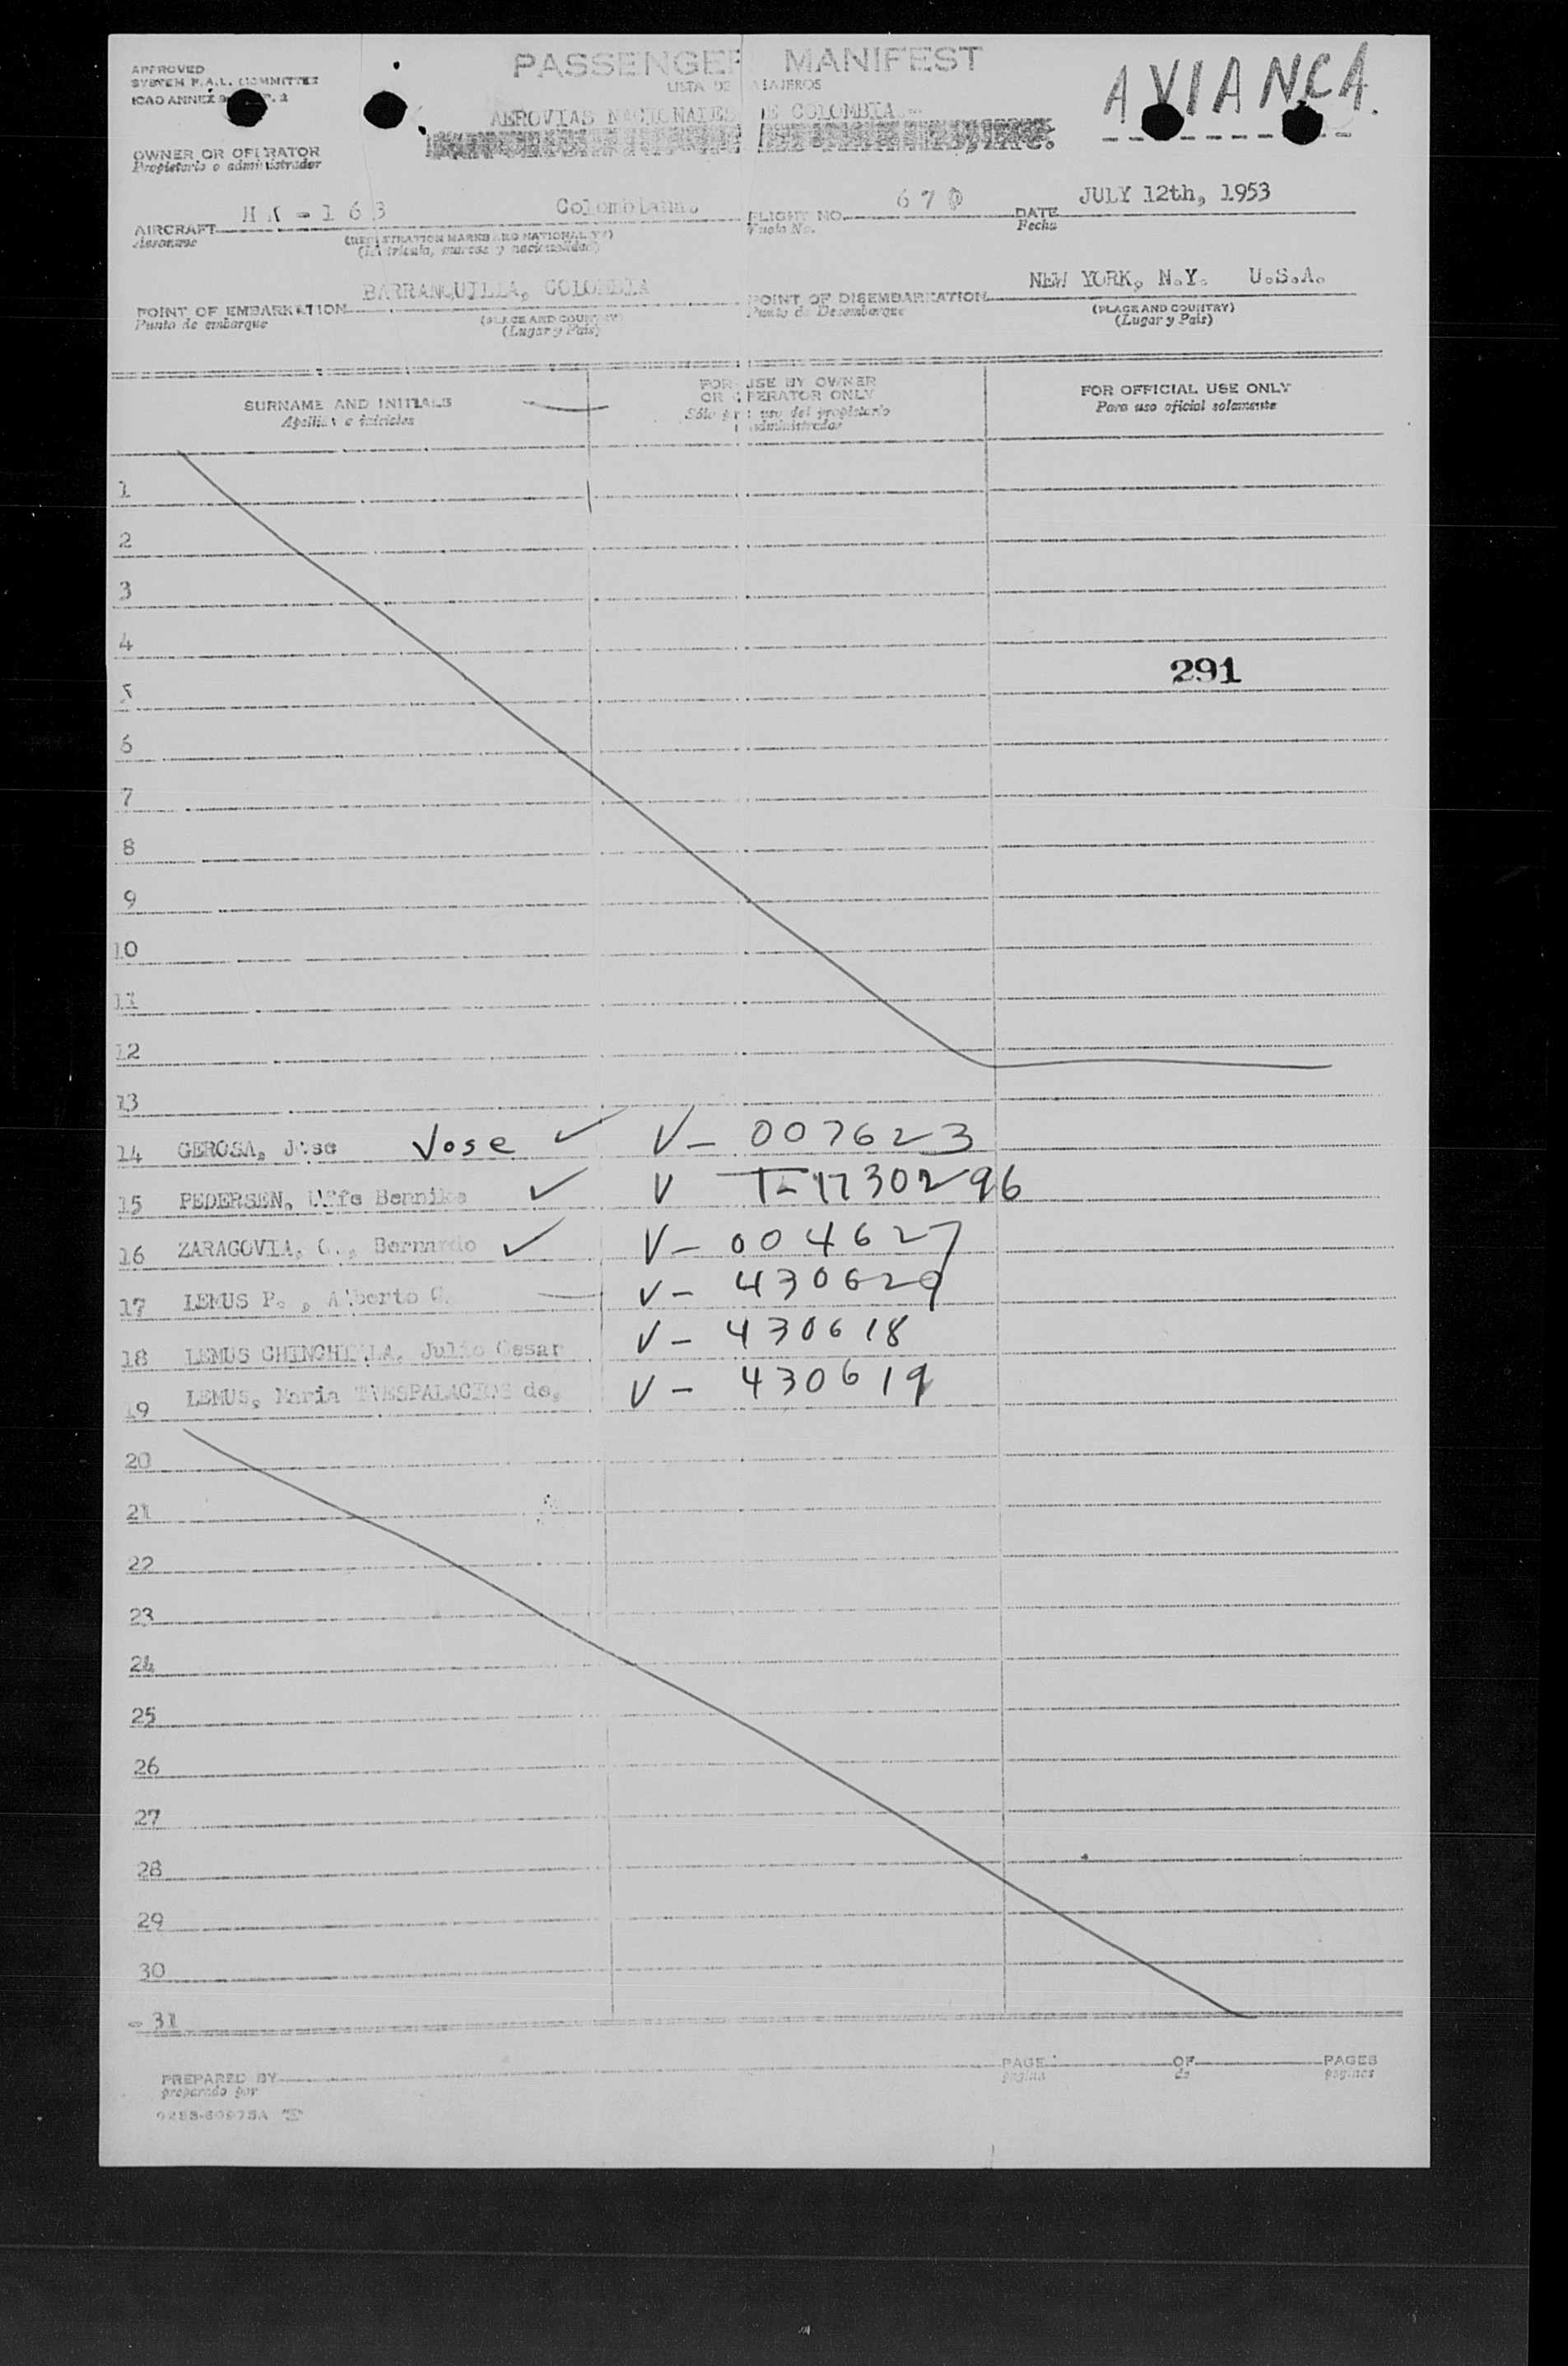 APPROVED
SYSTEM F.A.L. COMMITTEE
ICAO ANNEX 2
PASSENGER MANIFEST
LISTA DE VIAJEROS
AVIANCA.
AEROVIAS NACIONALES DE COLOMBIA
OWNER OR OPERATOR
Propietario o administrador
AIRCRAFT HK - 163 Colombiana. FLIGHT NO. 670 DATE JULY 12th, 1953
Aeronave (REGISTRATION MARKS AND NATIONALITY) Vuelo No. Fecha
(Matricula, marcas y nacionalidad)
POINT OF EMBARKATION BARRANQUILLA, COLOMBIA POINT OF DISEMBARKATION NEW YORK, N.Y. U.S.A.
Punto de embarque (PLACE AND COUNTRY) Punto de Desembarque (PLACE AND COUNTRY)
(Lugar y País) (Lugar y País)
SURNAME AND INITIALS FOR USE BY OWNER OR OPERATOR ONLY FOR OFFICIAL USE ONLY
Apellido e iniciales Sólo para uso del propietario administrador Para uso oficial solamente
1
2
3
4
291
5
6
7
8
9
10
11
12
13
14 GEROSA, Jose Jose V- 007623
15 PEDERSEN, Uffe Bennike V T-1730296
16 ZARAGOVIA, G., Bernardo V- 004627
17 LEMUS P., Alberto G. V- 430620
18 LEMUS CHINCHILLA, Julio Cesar V- 430618
19 LEMUS, Maria TRESPALACIOS de, V- 430619
20
21
22
23
24
25
26
27
28
29
30
31
PREPARED BY PAGE OF PAGES
preparado por página de páginas